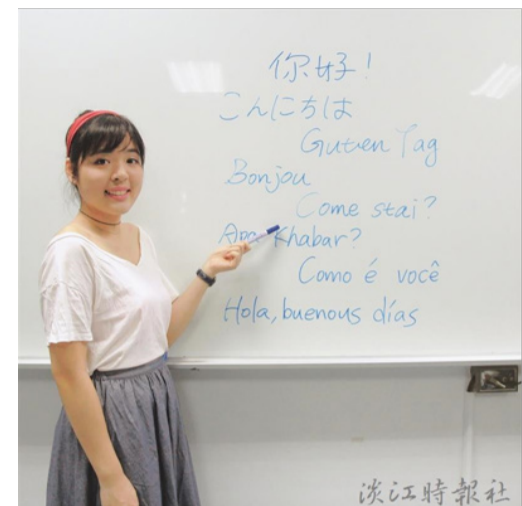 你好!
こんにちは
Guten Tag
Bonjou
Come stai?
Apa Khabar?
Como é você
Hola, buenous días
淡江時報社